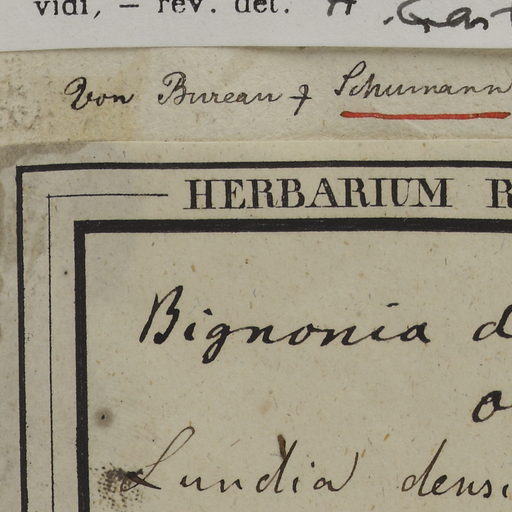 vidi, — rev. det.
Von Bureau & Schumann
HERBARIUM R
Bignonia d
o
Lundia densi